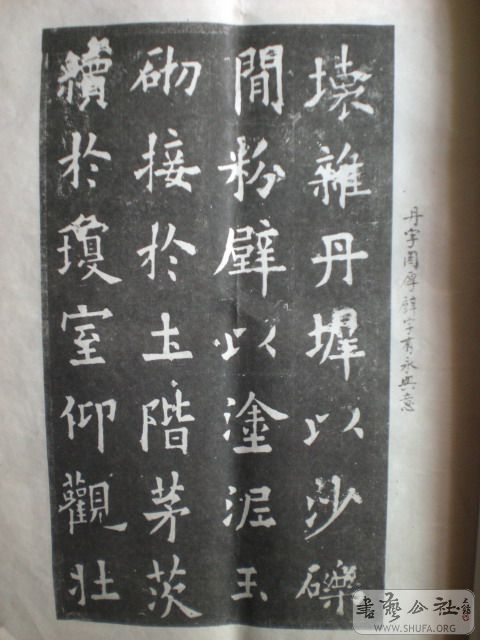 丹字圓厚辟字有永興意
壞雜丹墀以沙礫
閒粉壁以塗泥玉
砌接於土階茅茨
續於瓊室仰觀壯
書藝公社
WWW.SHUFA.ORG